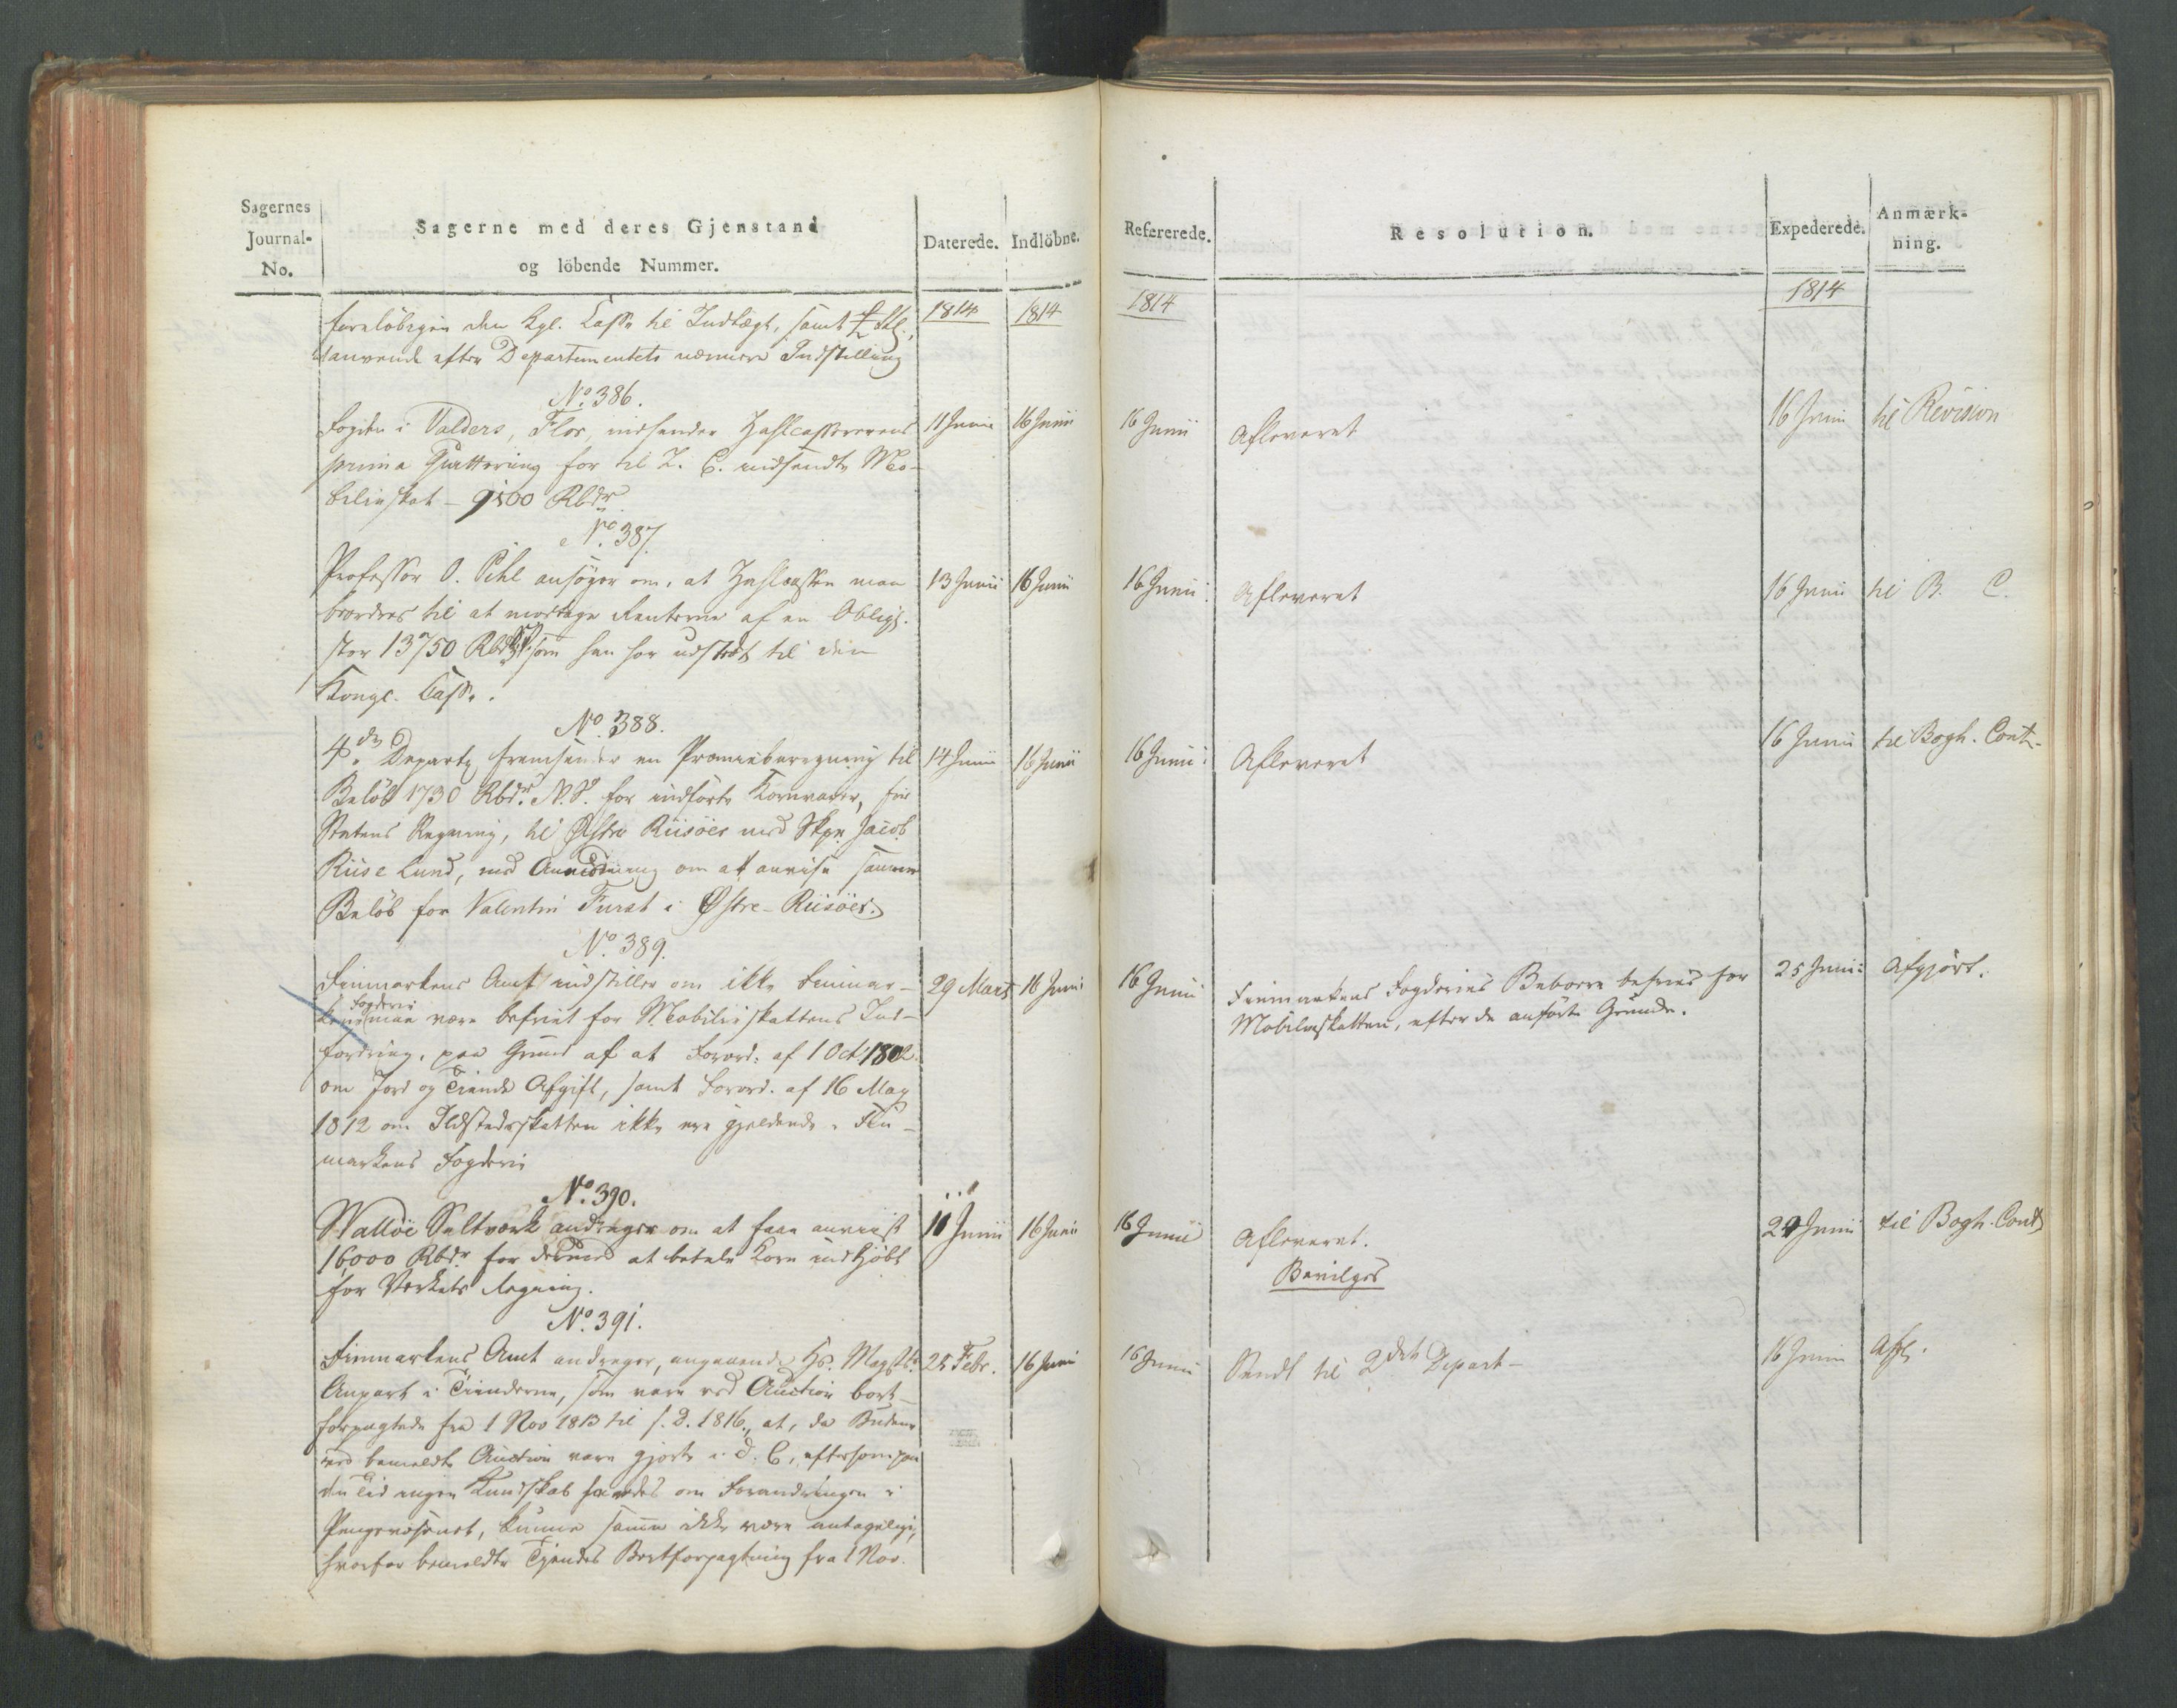 Sagernes
Journal-
No.
Sagerne med deres Gjenstand
og löbende Nummer.
Daterede.
Indlöbne.
Refererede.
Resolution.
Expederede.
Anmærk-
ning.
1814
1814
1814
1814
foreløbigen den Kgl. Casse til Indtægt, samt
anvende efter Departementets nærmere Indstilling
No. 386.
Fogden i Valders, Flor, indsender Zahlcassererens
prima Qvittering for til Z. C. indsendte Mo-
bilieskat - 9100 Rbdr.
11 Junii
16 Junii
16 Junii
Afleveret
16 Junii
til Revision
No. 387.
Professor O. Pihl ansøger om, at Zahlcassen maa
beordres til at modtage Renterne af en Obligt.
stor 13750 Rbdr som han har udstædt til den
Kongl. Casse.
13 Junii
16 Junii
16 Junii
Afleveret
16 Junii
til B. C.
No. 388.
4de Departs fremsender en Præmieberegning til
Beløb 1730 Rbdr. N. V. for indførte Kornvarer, for
Statens Regning, til Østre Riisöer med Skpr. Jacob
Riise Lund, med Anmodning om at anvise samme
Beløb for Valentin Furst i Østre-Riisöer.
14 Junii
16 Junii
16 Junii
Afleveret
16 Junii
til Bogh. Cont.
No. 389.
Finmarkens Amt indstiller om ikke Finmar-
kens Fogderi maa være befriet for Mobilieskattens Ind-
fordring, paa Grund af at Forord. af 1 Oct. 1802
om Jord og Tiende Afgift, samt Forord. af 16 May
1812 om Ildstedsskatten ikke ere gjeldende i Fin-
markens Fogderi
29 Marts
16 Juni
16 Junii
Finmarkens Fogderies Beboere befries for
Mobilieskatten, efter de anførte Grunde.
25 Junii
Afgjört.
No. 390.
Walløe Saltværk andrager om at faae anviist
16,000 Rbdr. for dermed at betale Korn indkjøbt
for Værkets Regning.
11 Junii
16 Junii
16 Junii
Afleveret.
Bevilges
24 Junii
til Bogh. Cont.
No. 391.
Finmarkens Amt andrager, angaaende Hs. Majsts.
Anpart i Tienderne, som vare ved Auction bort-
forpagtede fra 1 Nov 1813 til s. D. 1816, at, da Budene
ved bemeldte Auction vare gjorte i D. C., eftersom paa
den Tid ingen Kundskab havdes om Forandringen i
Pengevæsenet, kunne samme ikke være antagelige,
hvorfor bemeldte Tiendes Bortforpagtning fra 1 Nov.
25 Febr.
16 Juni
16 Junii
Sendt til 2det Depart-
16 Junii
Afg.